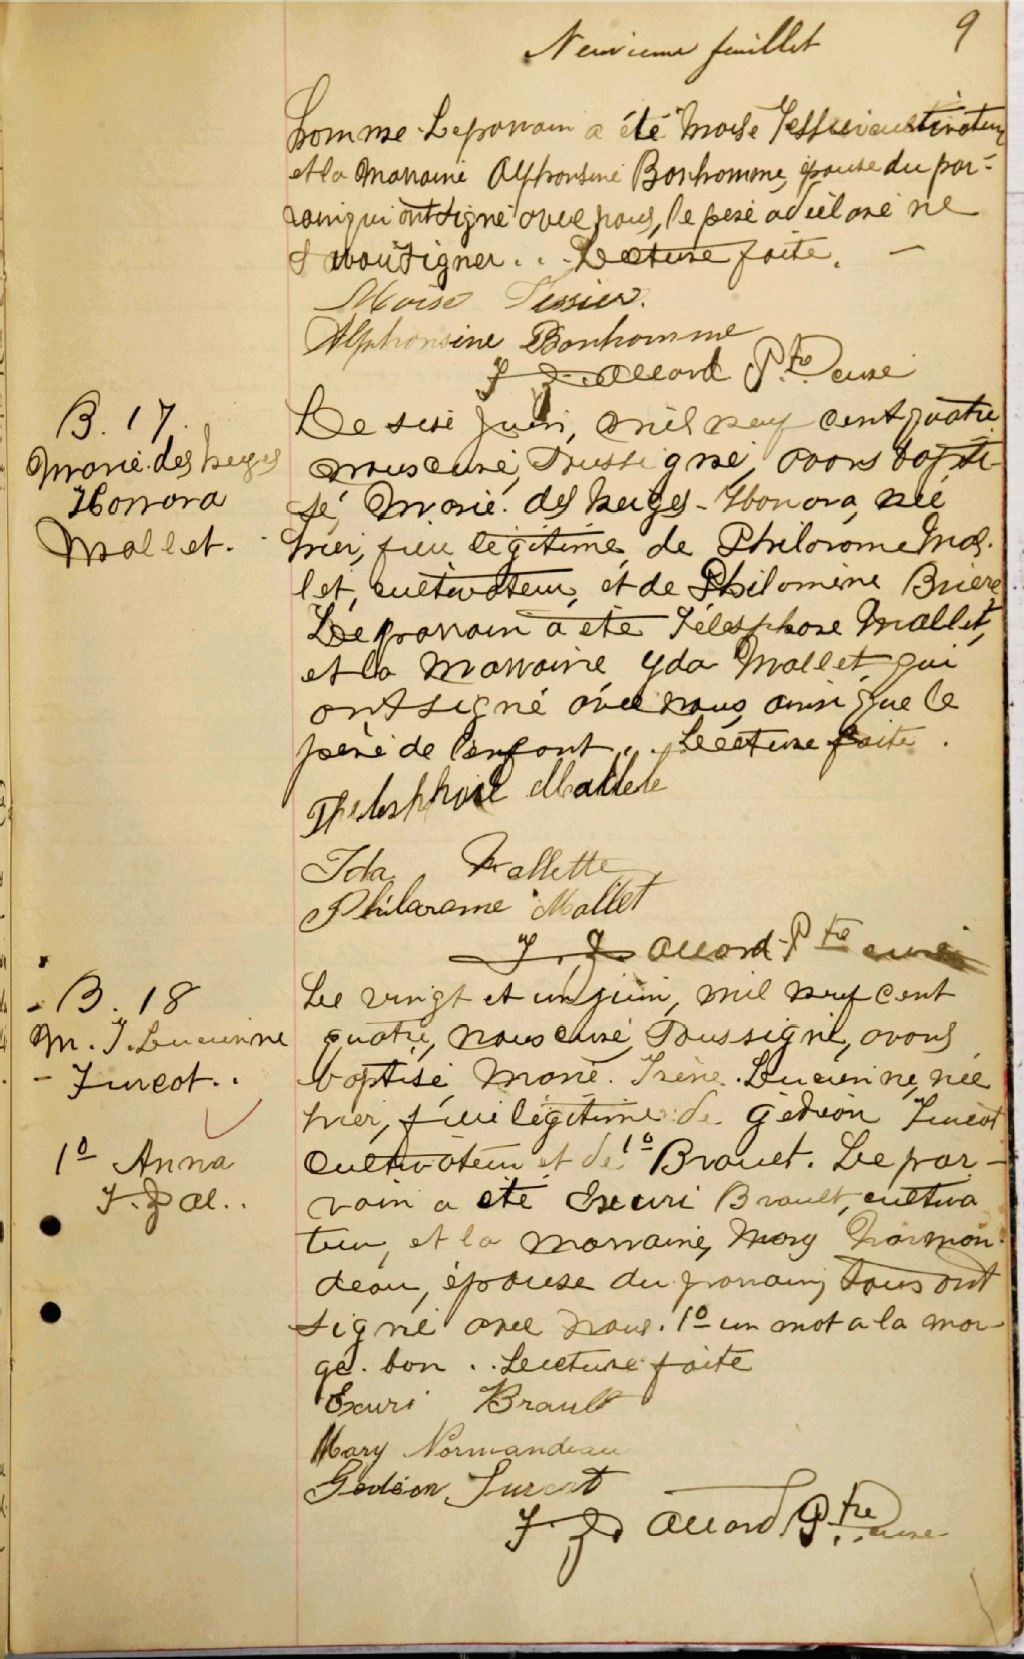 Neuvieme feuillet 9
homme. Le parrain a été Moïse Tessier cultivateur
et la Marraine Alphonsine Bonhomme, épouse du par-
rain qui ont signé avec nous, le père a déclaré ne
savoir signer... Lecture faite. —
Moïse Tessier.
Alphonsine Bonhomme
J. Z. Allard Ptre curé
B. 17.
Marie des Neiges
Honora
Mallet.
Le seize juin, mil neuf cent quatre
nous curé, soussigné, avons bapti-
sé, Marie. des Neiges - Honora, née
hier, fille légitime, de Philorome Mal-
let, cultivateur, et de Philomène Brière
Le parrain a été Télesphore Mallet,
et la Marraine Yda Mallet, qui
ont signé avec nous, ainsi que le
père de l'enfant... Lecture faite.
Thelesphore Mallete
Ida Mallette
Philarome Mallet
J. Z. Allard Ptre curé
- B. 18
M. I. Lucienne
- Turcot..
1º Anna
J. Z al..
Le vingt et un juin, mil neuf cent
quatre, nous curé, soussigné, avons
baptisé, Marie. Irène. Lucienne, née
hier, fille légitime de Gédéon Turcot
cultivateur et de 1º Brault. Le par-
rain a été Exuri Brault, cultiva
teur, et la marraine, Mary Normon-
deau, épouse du parrain, tous ont
signé avec nous. 1º un mot a la mar-
ge. bon .. Lecture faite
Exuri Brault
Mary Normandeau
Gédéon Turcot
J. Z. Allard Ptre curé